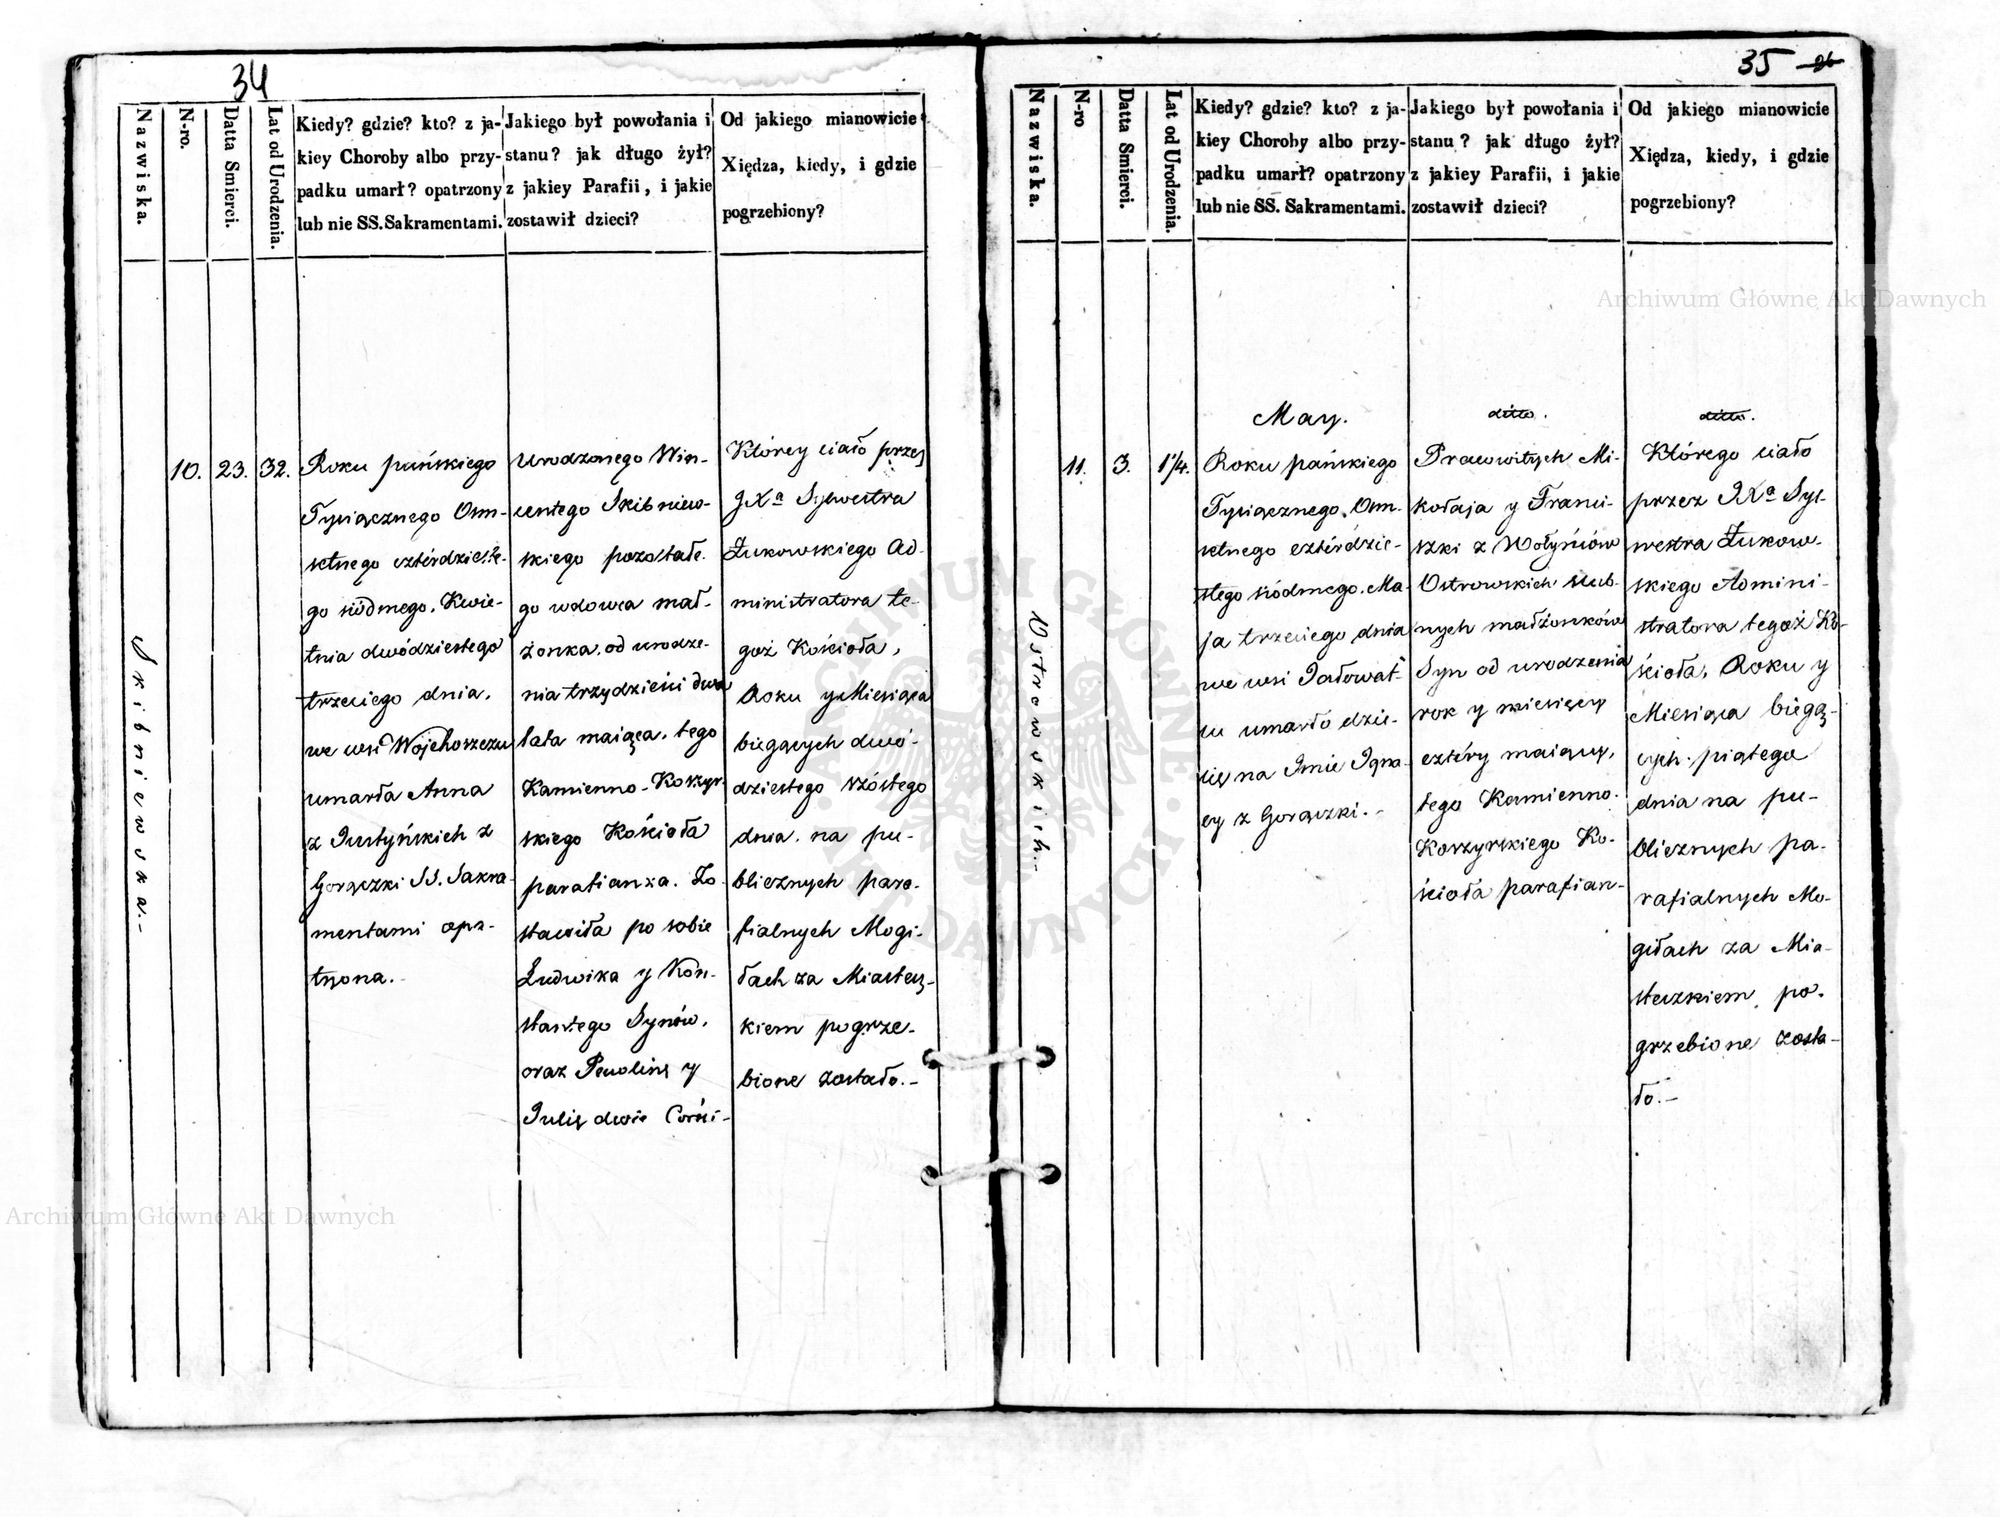 34
Nazwiska.
N-ro.
Datta Smierci.
Lat od Urodzenia.
Kiedy? gdzie? kto? z ja-
kiey Choroby albo przy-
padku umarł? opatrzony
lub nie SS. Sakramentami.
Jakiego był powołania i
stanu? jak długo żył?
z jakiey Parafii, i jakie
zostawił dzieci?
Od jakiego mianowicie
Xiędza, kiedy, i gdzie
pogrzebiony?
Skibniewska.-
10.
23.
32.
Roku pańskiego
Tysiącznego Ośm-
setnego cztérdzieste-
go siódmego, Kwie-
tnia dwódziestego
trzeciego dnia,
we wsi Wojehoszczu
umarła Anna
z Justyńskich z
Gorączki SS. Sakra-
mentami opa-
trzona.-
Urodzonego Win-
centego Skibniew-
skiego pozostałe-
go wdowca mał-
żonka, od urodze-
nia trzydzieści dwa
lata maiąca, tego
Kamienno-Koszyr-
skiego Kościoła
parafianka. Zo-
stawiła po sobie
Ludwika y Kon-
stantego Synów,
oraz Paulinę y
Julię dwie Córki-
Którey ciało przez
JXa Sylwestra
Żukowskiego Ad-
ministratora te-
goż Kościoła,
Roku y Miesiąca
biegących dwó-
dziestego szóstego
dnia, na pu-
blicznych para-
fialnych Mogi-
łach za Miastecz-
kiem pogrze-
bione zostało.-
35
Nazwiska.
N-ro
Datta Smierci.
Lat od Urodzenia.
Kiedy? gdzie? kto? z ja-
kiey Choroby albo przy-
padku umarł? opatrzony
lub nie SS. Sakramentami.
Jakiego był powołania i
stanu? jak długo żył?
z jakiey Parafii, i jakie
zostawił dzieci?
Od jakiego mianowicie
Xiędza, kiedy, i gdzie
pogrzebiony?
Ostrowskich.-
May.
ditto.
ditto.
11.
3.
1¼.
Roku pańskiego
Tysiącznego Ośm-
setnego cztérdzie-
stego siódmego, Ma-
ja trzeciego dnia
we wsi
cu umarło dzie-
cię na Imie Igna-
cy z Gorączki.-
Pracowitych Mi-
kołaja y Franci-
szki z Wołyńców
Ostrowskich ślub-
nych małżonków
Syn od urodzenia
rok y miesięcy
cztéry maiący,
tego Kamienno-
Koszyrskiego Ko-
ścioła parafian-
Którego ciało
przez JXa Syl-
westra Żukow-
skiego Admini-
stratora tegoż Ko-
ścioła, Roku y
Miesiąca biegą-
cych piątego
dnia na pu-
blicznych pa-
rafialnych Mo-
giłach za Mia-
steczkiem po-
grzebione zosta-
ło.-
Archiwum Główne Akt Dawnych
Archiwum Główne Akt Dawnych
ARCHIWUM GŁÓWNE AKT DAWNYCH